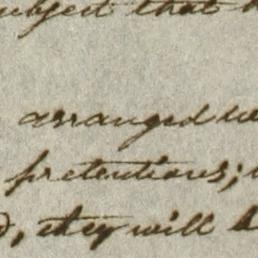 subject that
arranged
pretentions;
, they will